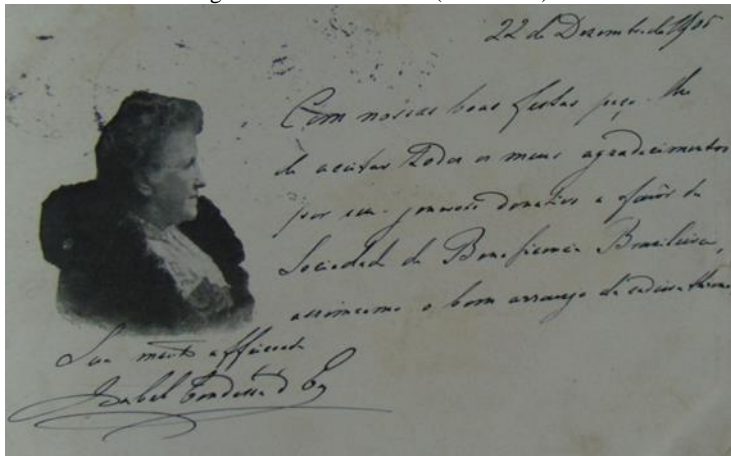 22 de Dezembro de 1905
Com nossas boas festas peço-lhe
de aceitar todos os meus agradecimentos
por seu generoso donativo a favor da
Sociedade de Beneficencia Brasileira,
assim como o bom arranjo
Sua muito affeiçoada
Isabel Condessa d'Eu